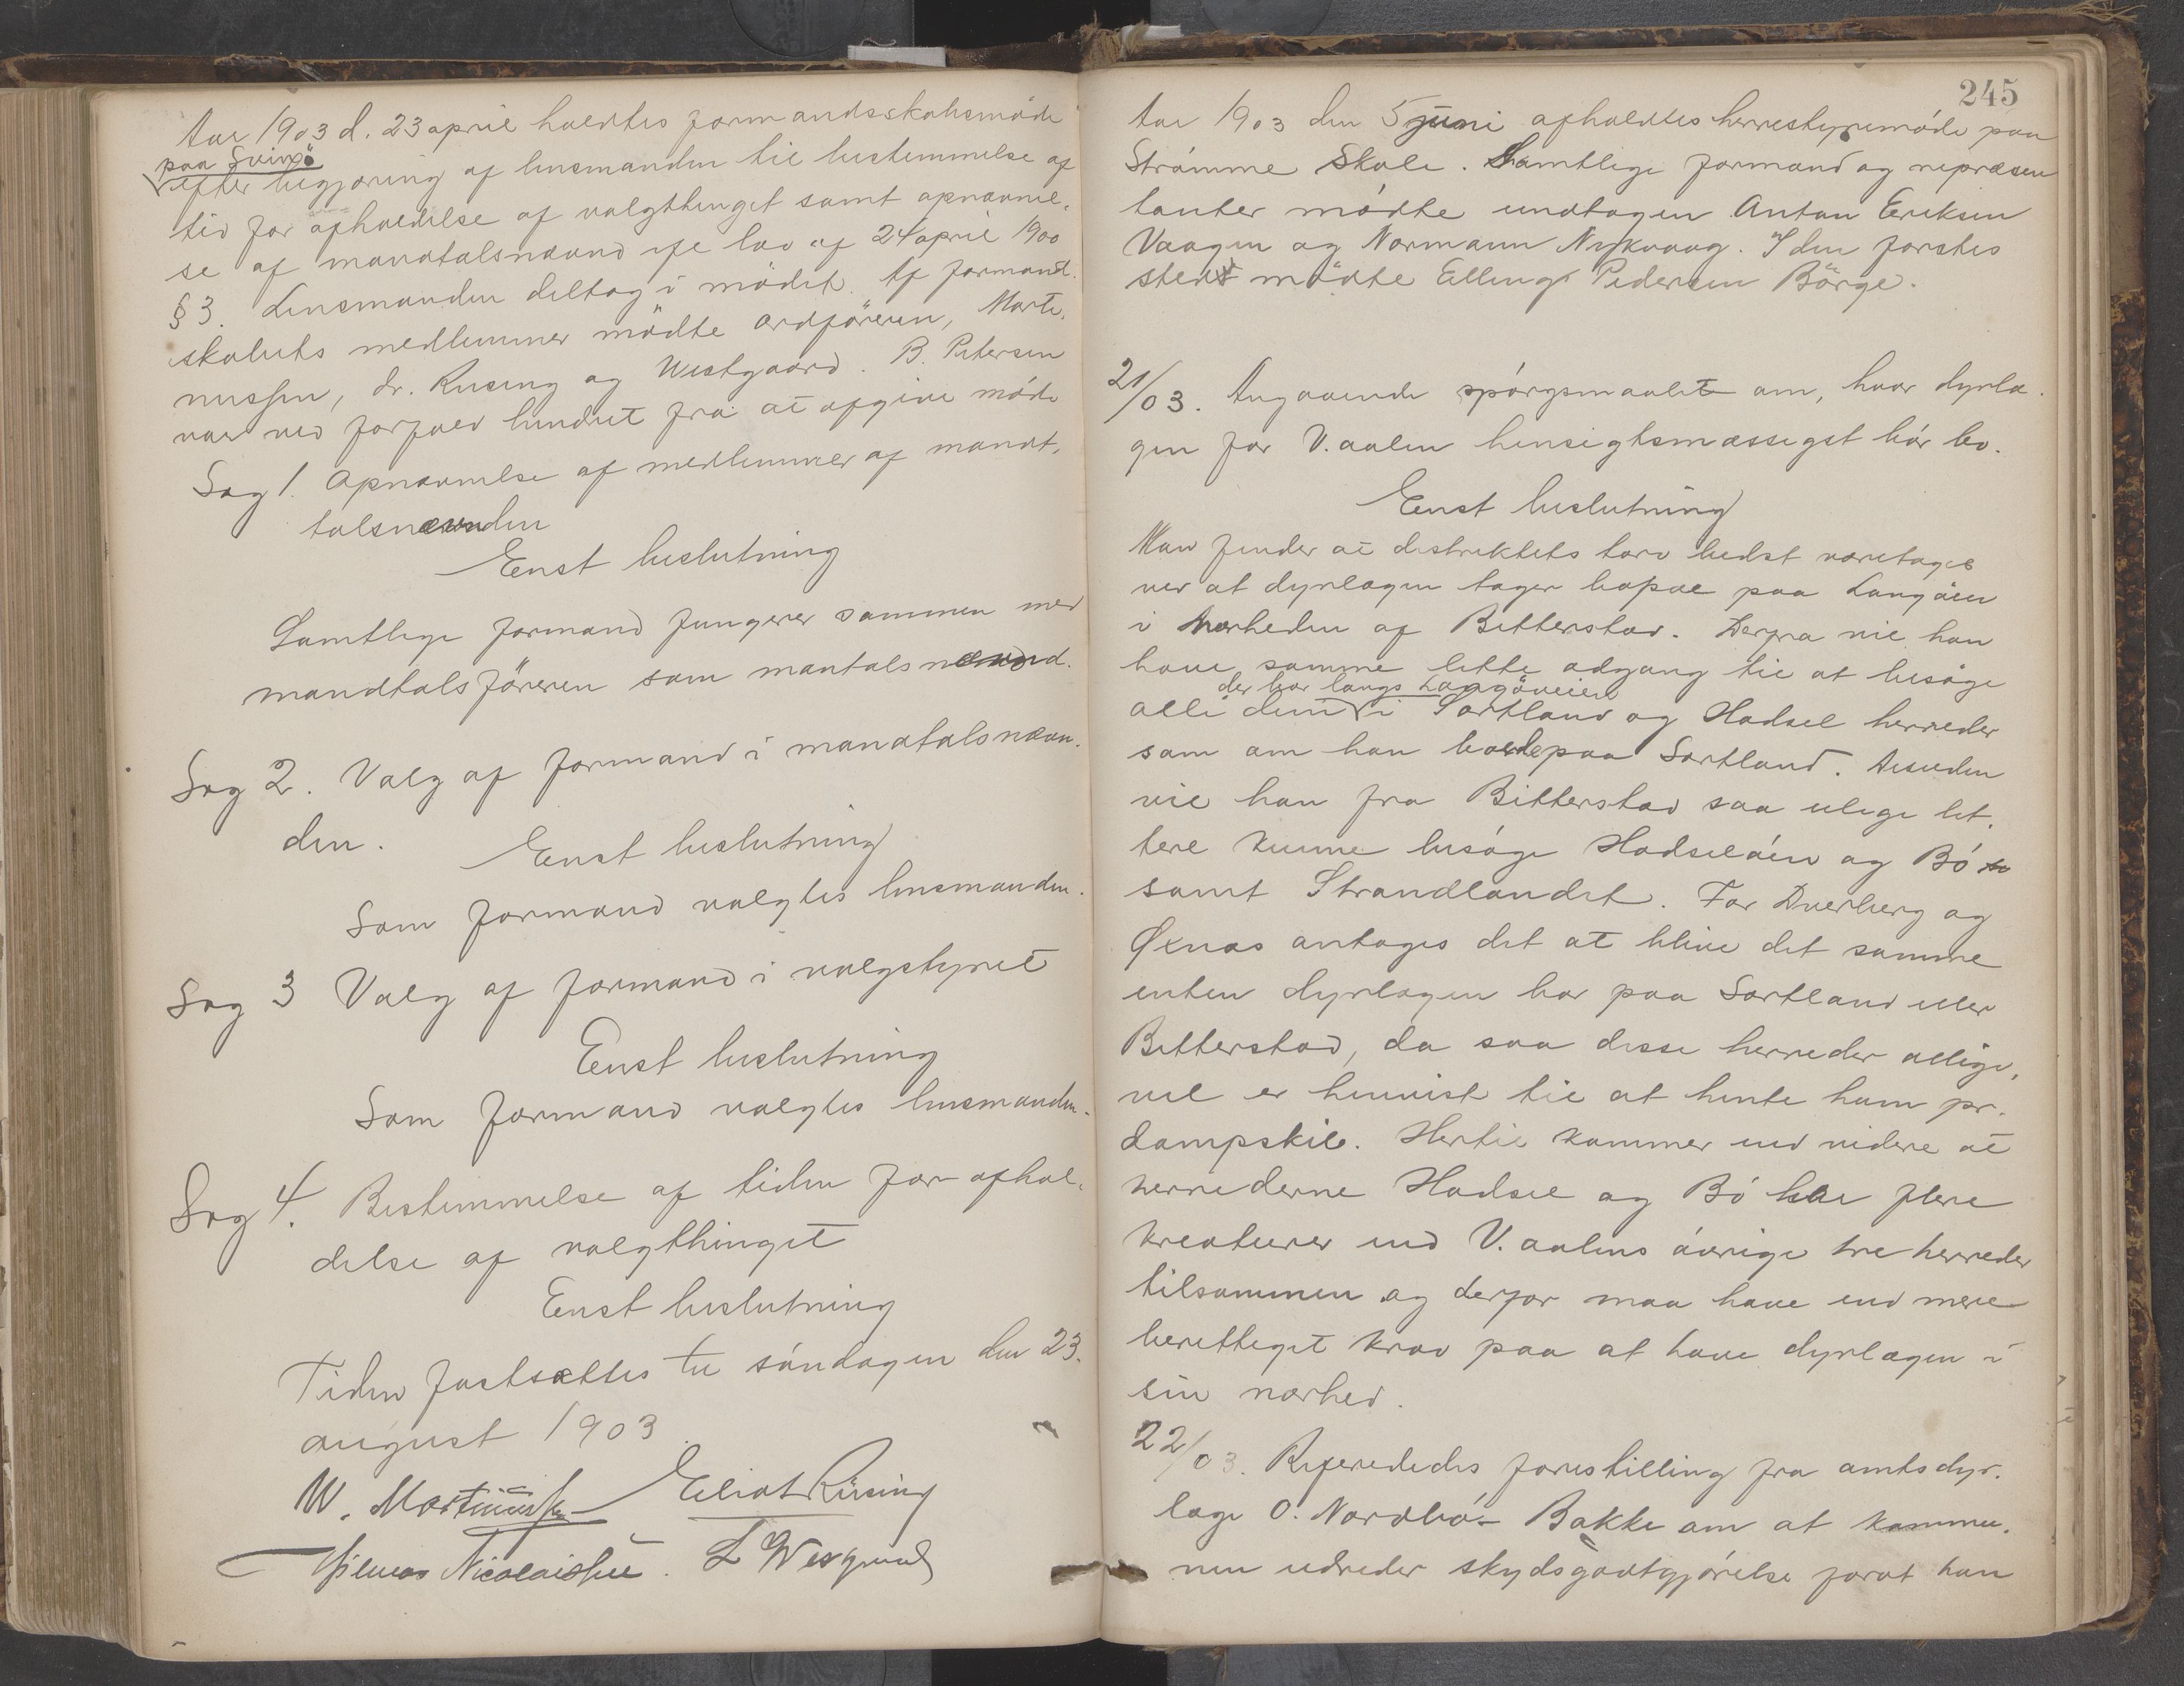 Aar 1903 d. 23 april holdtes formandsskabsmöde
paa Svinö
efter begjæring af lensmanden til bestemmelse af
tid for afholdelse af valgthinget samt opnævnel,
se af mandtalsnævnd ifl lov af 24 april 1900
§ 3. Lensmanden deltog i mödet. Af formand.
skabets medlemmer mödte ordföreren, Marti,
nussen, dr. Rusing og Westgaard. B. Petersen
var ved forfald hindret fra at afgive möde
Sag 1. Opnævnelse af medlemmer af mandt,
talsnævnden
Enst beslutning
Samtlige formænd fungerer sammen med
mandtalsföreren som mantalsnævnd.
Sag 2. Valg af formand i mandtalsnævn.
den.
Enst beslutning
Som formand valgtes lensmanden.
Sag 3 Valg af formand i valgstyret
Enst beslutning
Som formand valgtes lensmanden.
Sag 4. Bestemmelse af tiden for afhol,
delse af valgthinget
Enst beslutning
Tiden fastsættes til söndagen den 23.
august 1903.
W. Martinussen Eliot Rüsing
Hilmar Nicolaissen. L Westgaard
245
Aar 1903 den 5 juni afholdtes herrestyremöde paa
Strömme Skole. Samtlige formænd og repræsen
tanter mödte undtagen Anton Eriksen
Vaagen og Normann Nykvaag. I den forstes
sted mödte Elling Pedersen Börge.
21/03. Angaaende spörgsmaalet om, hvor dyrlæ.
gen for V.aalen hensigtsmæssigst bör bo.
Enst beslutning
Man finder at distriktets tarv bedst varetages
ved at dyrlægen tager bopæl paa Langöen
i nærheden af Bitterstad. Derfra vil han
have samme lette adgang til at besöge
der bor langs Langöveien
alle dem i Sortland og Hadsel herreder
som om han boede paa Sortland. Desuden
vil han fra Bitterstad saa ulige let,
tere kunne besöge Hadselöen og Bö
samt Strandlandet. For Dverberg og
Øxnes antages det at blive det samme
enten dyrlægen bor paa Sortland eller
Bitterstad, da saa disse herreder allige,
vel er henvist til at hente ham pr.
dampskib. Hertil kommer end videre at
herrederne Hadsel og Bö har flere
kreaturer end V.aalens övrige tre herreder
tilsammen og derfor maa have end mere
berettiget krav paa at have dyrlægen i
sin nærhed.
22/03. Refereredes forestilling fra amtsdyr.
læge O. Nordbö-Bakke om at kommu.
nen udreder skydsgodtgjörelse forat han